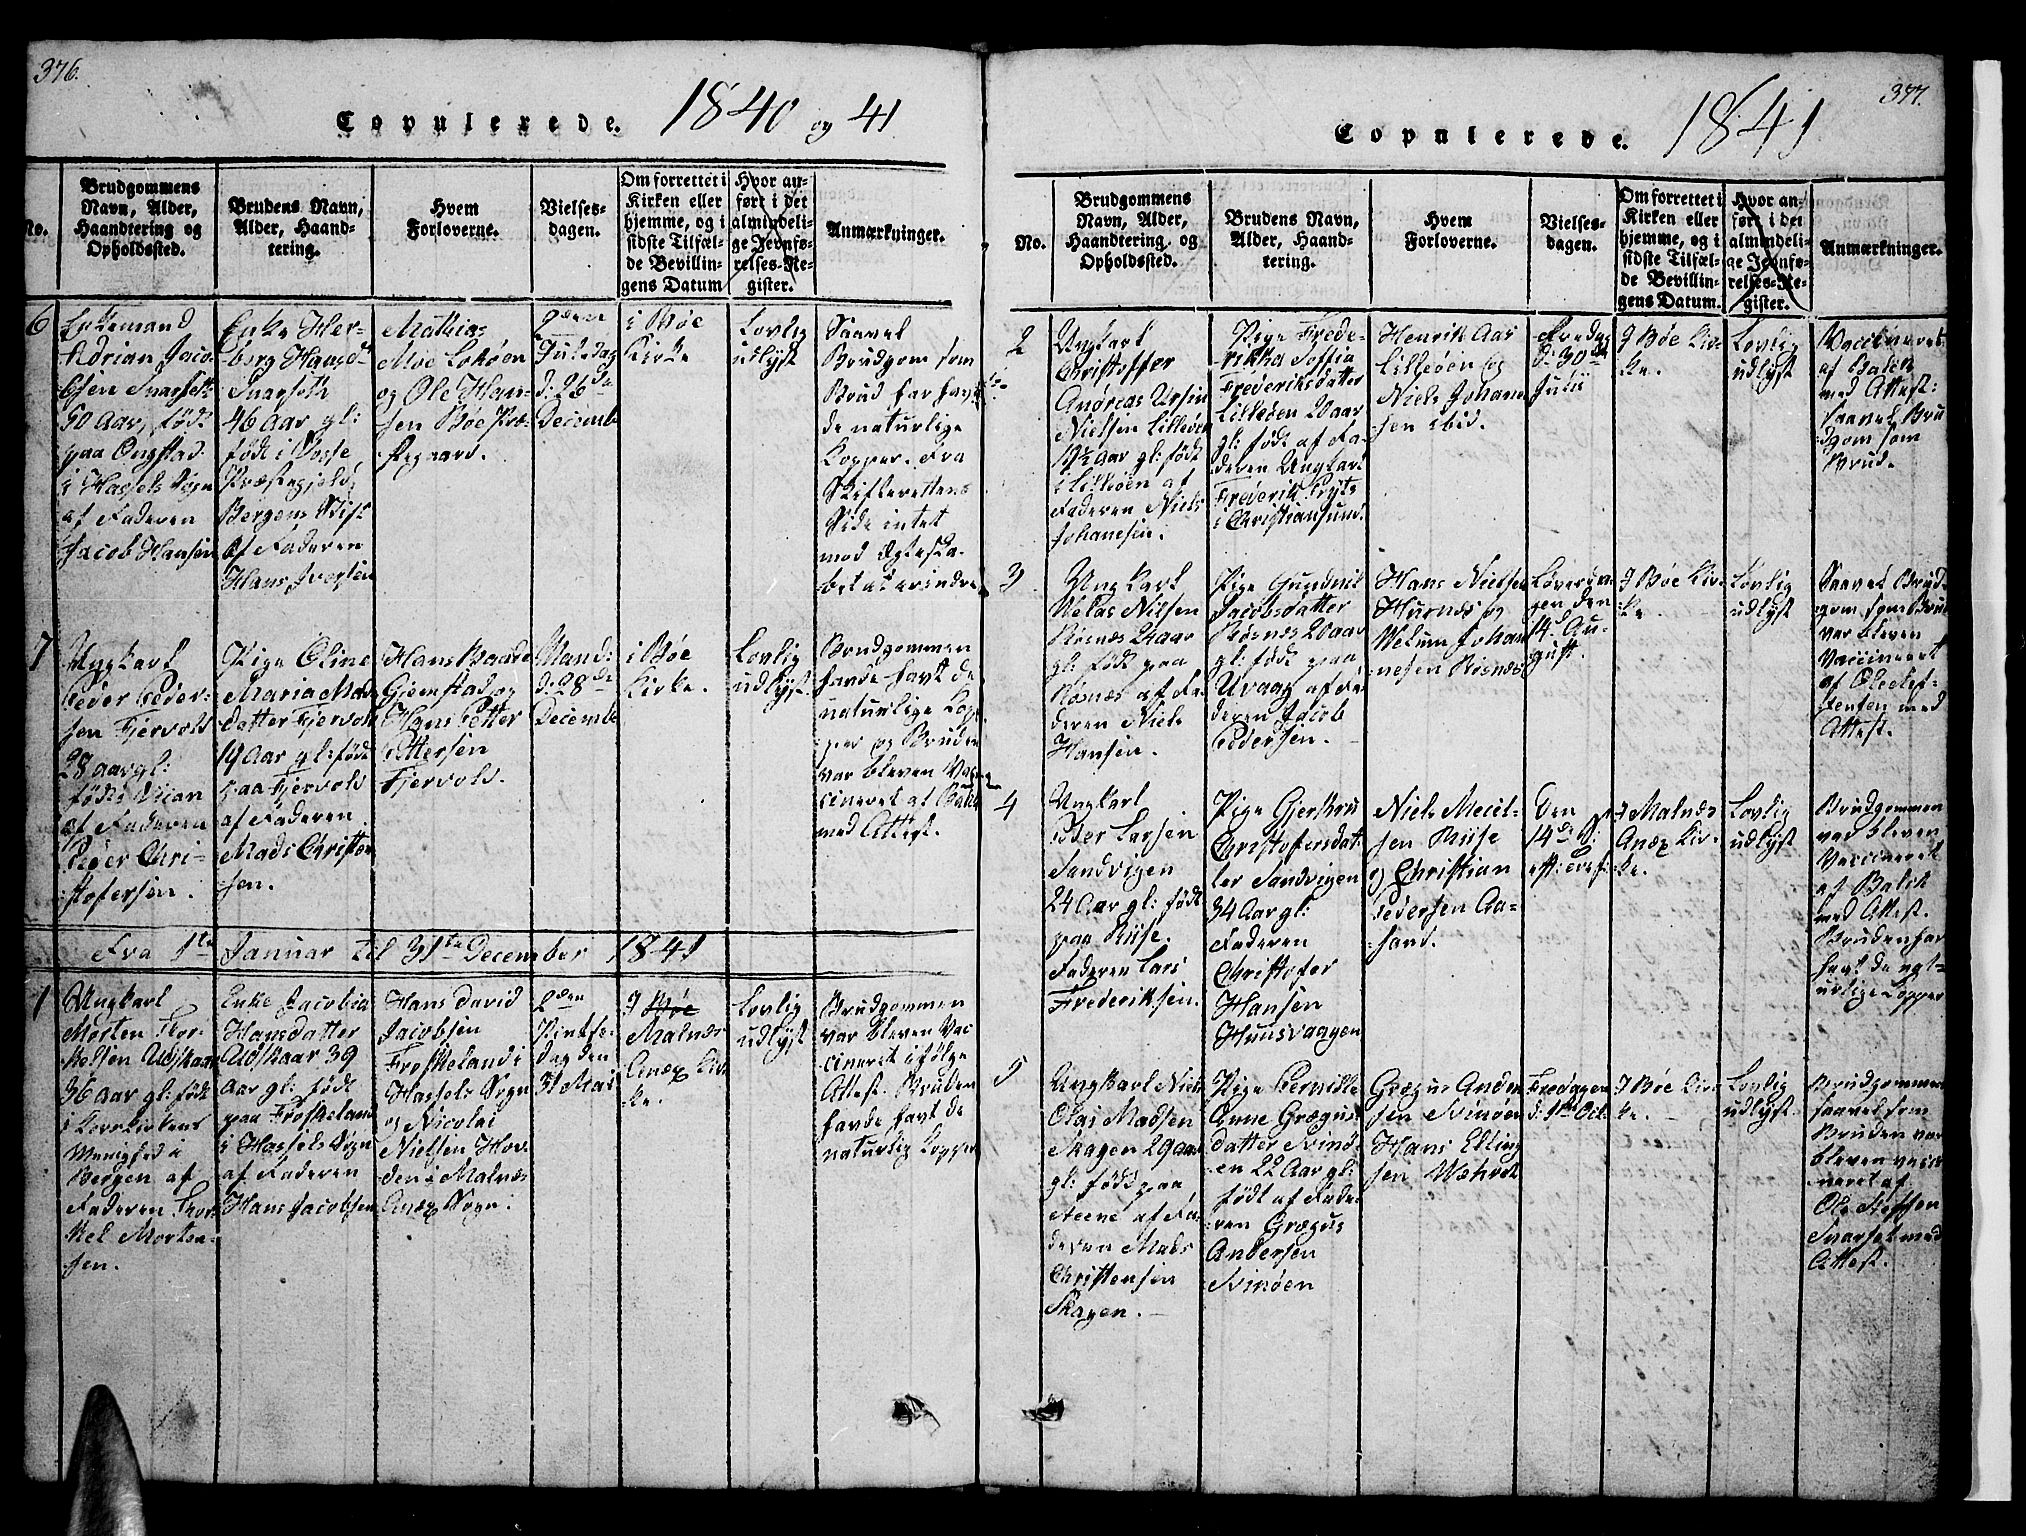 376.
Copulerede. 1840 og 41
No.
Brudgommens
Navn, Alder,
Haandtering og
Opholdssted.
Brudens Navn,
Alder, Haand-
tering.
Hvem
Forloverne.
Vielses-
dagen.
Om forrettet i
Kirken eller
hjemme, og i
sidste Tilfæl-
de Bevillin-
gens Datum
Hvor an-
ført i det
almindeli-
ge Jevnfø-
relses-Re-
gister.
Anmærkninger.
6
Enkemand
Adrian Jaco-
bsen Svarset
50 Aar, født
paa Ongstad
i Hassels Sogn
af Faderen
Jacob Hansen
Enke Her-
borg Hansd
46 Aar gl:
født i Vosse
Præstegjeld,
Bergens Stift
af Faderen
Hans Iversen
Mathias
Moe Lohøen
og Ole Han-
sen Bøe Præ-
stegaard.
2den
Juledag
d: 26de
Decemb
i Bøe
Kirke
Lovlig
udlyst
Saavel
Brudgom som
Brud har hav
de naturlige
Kopper. Fra
Skifterettens
Side intet
mod Ægteska-
bet at erindre
7
Ungkarl
Peder Peder-
sen Fjervold
28 aar gl:
født i
af Faderen
Peder Chri-
stofersen.
Pige Oline
Maria Mads
datter Fjervold
19 Aar gl: født
paa Fjervold
af Faderen
Mads Christen
sen.
Hans Baade
Gjemstad og
Hans Petter
Pettersen
Fjervold.
Mand:
d: 28de
Decembe
i Bøe
Kirke.
Lovlig
udlyst.
Brudgommen
havde havt de
naturlige Kop-
per og Bruden
var bleven Vac
cineret af Balch
med Attest.
Fra 1te Januar til 31te December 1841
1
Ungkarl
Morten Thor-
kelsen Udskaar
36 Aar gl: født
i Korskirkens
Menighed i
Bergen af
Faderen Thor
kel Morten-
sen.
Enke Jacobia
Hansdatter
Udskaar 39
Aar gl: født
paa Froskeland
i Hassels Sogn
af Faderen
Hans Jacobsen
Hans David
Jacobsen
Froskeland i
Hassels Sogn
og Nicolai
Nielsen Hov-
den i Malnæs
Anex Sogn.
2den
Pintse-
dag den
31 Mai
I Bøe
Malnæs
Anex Kir
ke.
Lovlig
udlyst
Brudgommen
var bleven Vac
cineret ifølge
Attest. Bruden
havde havt de
naturlig Kopper
377.
Copulerede. 1841
No.
Brudgommens
Navn, Alder,
Haandtering og
Opholdssted.
Brudens Navn,
Alder, Haand-
tering.
Hvem
Forloverne.
Vielses-
dagen.
Om forrettet i
Kirken eller
hjemme, og i
sidste Tilfæl-
de Bevillin-
gens Datum.
Hvor an-
ført i det
almindeli-
ge Jevnfø-
relses-Re-
gister.
Anmærkninger.
2
Ungkarl
Christoffer
Andreas Ursin
Nielsen Lilleøen
19½ Aar gl: født
i Lilleøen af
Faderen Niels
Johanesen.
Pige Frede-
rikka Soffia
Frederiksdatter
Lilleøen 20 aar
gl: født af Fa-
deren Ungkarl
Frederik
i Christiansund.
Henrik Aas
Lilleøen og
Niels Johane
sen ibid.
Fredag
d: 30te
Julii
I Bøe Kir-
ke.
Lovlig
udlyst
Vaccineret
af Balch
med Attest:
saavel Bru
dgom som
Brud.
3
Ungkarl
Nielsen
Røsnæs 24 aar
gl: født paa
Røsnæs af Fa
deren Niels
Hansen.
Pige
Jacobsdatter
Røsnæs 20 aar
gl: født paa
Uvaag af Fa
deren Jacob
Pedersen.
Hans Nielsen
og
Johan
nesen Risnæs
Løverda-
gen den
14d Au-
gust.
I Bøe Kir-
ke.
Lovlig
udlyst
Saavel Brud
gom som Brud
var bleven
Vaccineret
af Ole
med
Attest.
4
Ungkarl
Peder Larsen
Sandvigen
24 Aar gl: født
paa Riise.
Faderen Lars
Frederiksen.
Pige Gjertru
Christofersdat-
ter Sandvigen
34 Aar gl:
Faderen
Christofer
Hansen
Huusvaagen
Niels
sen Riise
og Christian
Pedersen Aa-
sand.
Den
14de S:
I Malnæs
Anex Kir-
ke.
Lovlig
udlyst
Brudgommen
var bleven
Vaccineret
af Balch
med Attest.
Bruden har
havt de nat-
urlige Kopper
5
Ungkarl Niels
Olai Madsen
Skagen 29 aar
gl: født paa
af Fa-
deren Mads
Christensen
Skagen.
Pige Pernille
Anne Grægus
datter Svinø-
en 22 Aar gl:
født af Fade-
ren Grægus
Andersen
Svinøen
Grægus Ander
sen Svinøen
Hans
sen
Fredagen
d: 1te Oct
I Bøe Kir
ke.
Lovlig
udlyst.
Brudgommen
saavel som
Bruden var
bleven vacci
neret af
Ole Steffen
Svarset med
Attest.